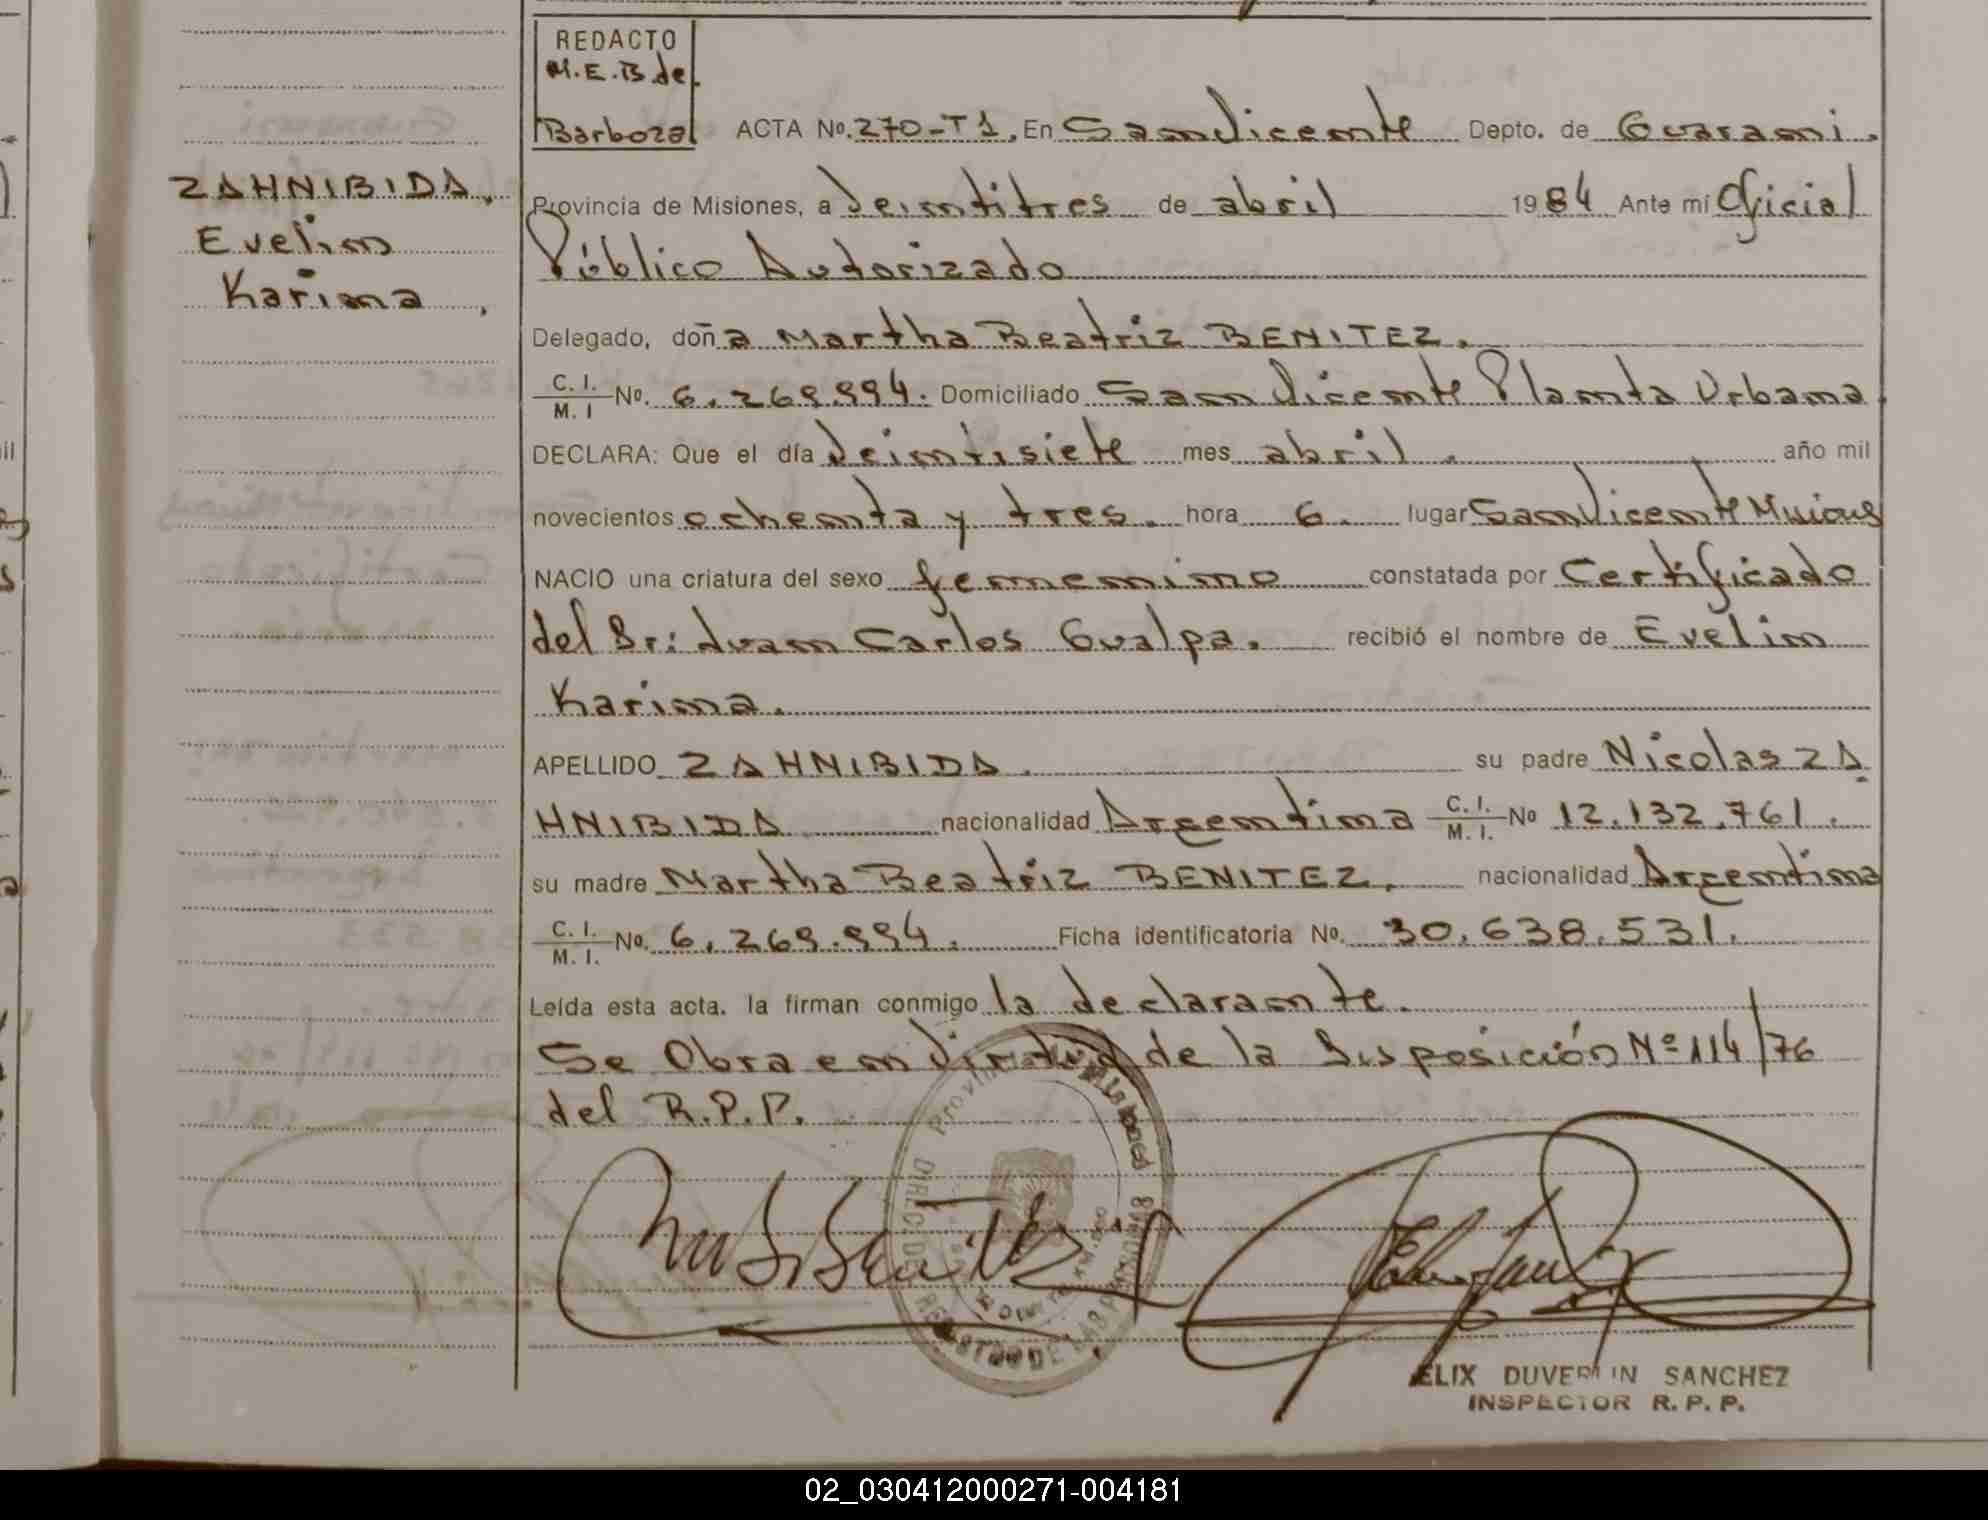 REDACTO
M.E.B de.
Barboza
ACTA No. 270-T1. En San Vicente Depto. de Guarani.
ZAHNIBIDA,
Evelin
Karina,
Provincia de Misiones, a veintitres de abril 1984 Ante mí Oficial
Público Autorizado
Delegado, doña Martha Beatriz BENITEZ.
C. I. / M. I No. 6.269.994. Domiciliado San Vicente Planta Urbana
DECLARA: Que el día veintisiete mes abril. año mil
novecientos ochenta y tres. hora 6. lugar San Vicente Misiones
NACIO una criatura del sexo femenino constatada por Certificado
del Sr: Juan Carlos Gualpa. recibió el nombre de Evelin
Karina.
APELLIDO ZAHNIBIDA. su padre Nicolas ZA
HNIBIDA nacionalidad Argentina C. I. / M. I. No 12.132.761.
su madre Martha Beatriz BENITEZ. nacionalidad Argentina
C. I. / M. I. No. 6.269.994. Ficha identificatoria No. 30.638.531.
Leída esta acta. la firman conmigo la declarante.
Se Obra en virtud de la Disposición Nº 114/76
del R.P.P.
Provincia de Misiones
DIREC. DEL REGISTRO DE LAS PERSONAS
ELIX DUVERLIN SANCHEZ
INSPECTOR R. P. P.
02_030412000271-004181